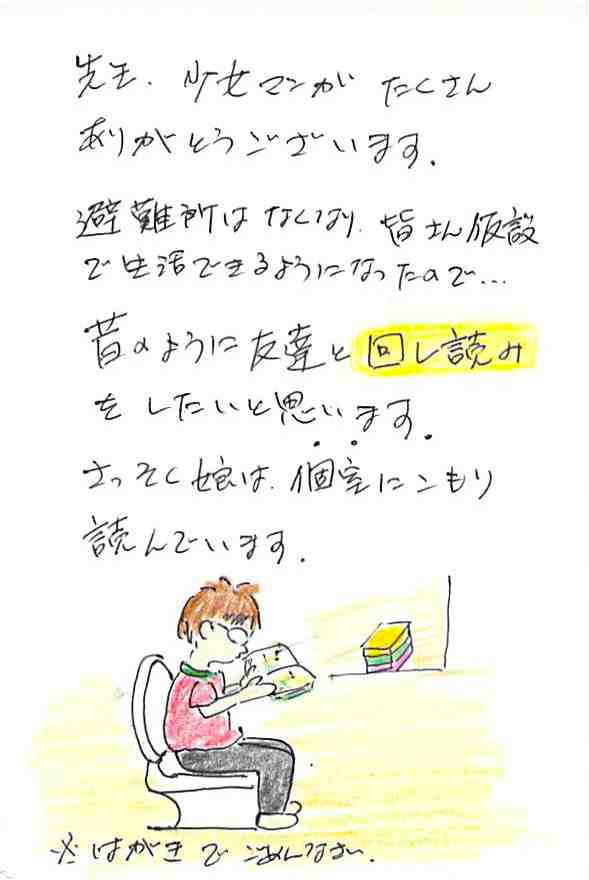 先生、少女マンガ たくさん
ありがとうございます。
避難所はなくなり、皆さん仮設
で生活できるようになったので…
昔のように友達と回し読み
をしたいと思います。
さっそく娘は、個室にこもり
読んでいます。
※はがきでごめんなさい。